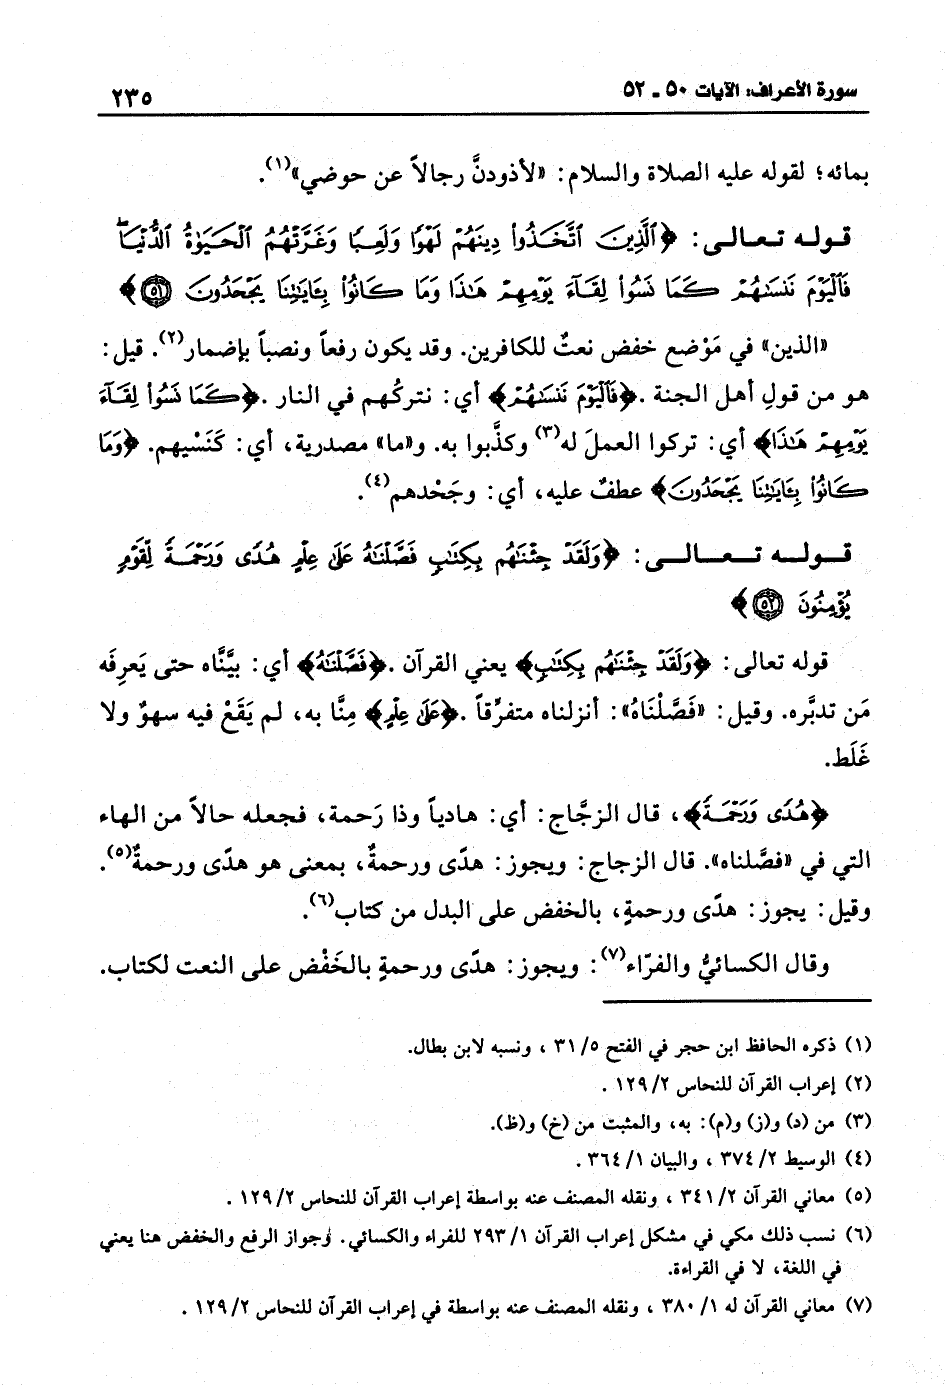 سورة الأعراف: الآيات ٥٠ ـ ٥٢
٢٣٥
بمائه؛ لقوله عليه الصلاة والسلام: «لأذودنَّ رجالاً عن حوضي»(١).
قوله تعالى: ﴿ٱلَّذِينَ ٱتَّخَذُوا۟ دِينَهُمْ لَهْوًا وَلَعِبًا وَغَرَّتْهُمُ ٱلْحَيَوٰةُ ٱلدُّنْيَا ۚ
فَٱلْيَوْمَ نَنسَىٰهُمْ كَمَا نَسُوا۟ لِقَآءَ يَوْمِهِمْ هَٰذَا وَمَا كَانُوا۟ بِـَٔايَٰتِنَا يَجْحَدُونَ ٥١﴾
«الذين» في مَوْضع خفض نعتٌ للكافرين. وقد يكون رفعاً ونصباً بإضمار(٢). قيل:
هو من قولِ أهل الجنة .﴿فَٱلْيَوْمَ نَنسَىٰهُمْ﴾ أي: نتركُهم في النار .﴿كَمَا نَسُوا۟ لِقَآءَ
يَوْمِهِمْ هَٰذَا﴾ أي: تركوا العملَ له(٣) وكذَّبوا به. و«ما» مصدرية، أي: كَنَسْيهم. ﴿وَمَا
كَانُوا۟ بِـَٔايَٰتِنَا يَجْحَدُونَ﴾ عطفٌ عليه، أي: وجَحْدهم(٤).
قوله تعالى: ﴿وَلَقَدْ جِئْنَٰهُم بِكِتَٰبٍ فَصَّلْنَٰهُ عَلَىٰ عِلْمٍ هُدًى وَرَحْمَةً لِّقَوْمٍ
يُؤْمِنُونَ ٥٢﴾
قوله تعالى: ﴿وَلَقَدْ جِئْنَٰهُم بِكِتَٰبٍ﴾ يعني القرآن .﴿فَصَّلْنَٰهُ﴾ أي: بيَّنَّاه حتى يَعرِفَه
مَن تدبَّره. وقيل: «فَصَّلْنَاهُ»: أنزلناه متفرِّقاً .﴿عَلَىٰ عِلْمٍ﴾ مِنَّا به، لم يَقَعْ فيه سهوٌ ولا
غَلَط.
﴿هُدًى وَرَحْمَةً﴾، قال الزجَّاج: أي: هادياً وذا رَحمة، فجعله حالاً من الهاء
التي في «فصَّلناه». قال الزجاج: ويجوز: هدًى ورحمةٌ، بمعنى هو هدًى ورحمةٌ(٥).
وقيل: يجوز: هدًى ورحمةٍ، بالخفض على البدل من كتاب(٦).
وقال الكسائيُّ والفرّاء(٧): ويجوز: هدًى ورحمةٍ بالخَفْض على النعت لكتاب.
(١) ذكره الحافظ ابن حجر في الفتح ٣١/٥ ، ونسبه لابن بطال.
(٢) إعراب القرآن للنحاس ١٢٩/٢ .
(٣) من (د) و(ز) و(م): به، والمثبت من (خ) و(ظ).
(٤) الوسيط ٣٧٤/٢ ، والبيان ٣٦٤/١ .
(٥) معاني القرآن ٣٤١/٢ ، ونقله المصنف عنه بواسطة إعراب القرآن للنحاس ١٢٩/٢ .
(٦) نسب ذلك مكي في مشكل إعراب القرآن ٢٩٣/١ للفراء والكسائي. وجواز الرفع والخفض هنا يعني
في اللغة، لا في القراءة.
(٧) معاني القرآن له ٣٨٠/١ ، ونقله المصنف عنه بواسطة في إعراب القرآن للنحاس ١٢٩/٢ .